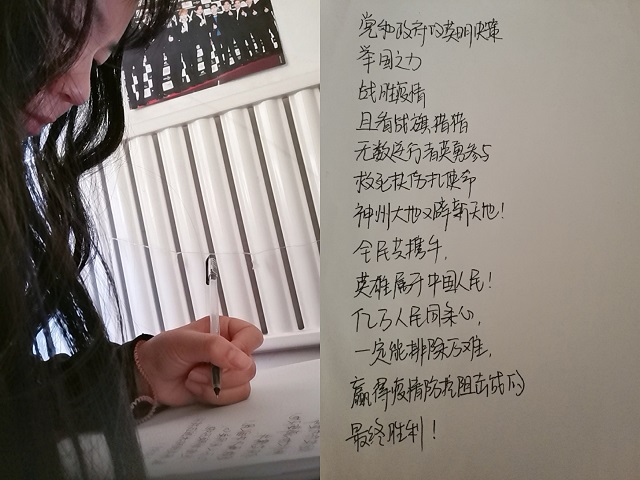 党和政府的英明决策
举国之力
战胜疫情
且看战旗猎猎
无数逆行者英勇参与
救死扶伤扎使命
神州大地又辟新天地！
全民共携手，
英雄属于中国人民！
亿万人民同条心，
一定能排除万难，
赢得疫情防抗阻击战的
最终胜利！